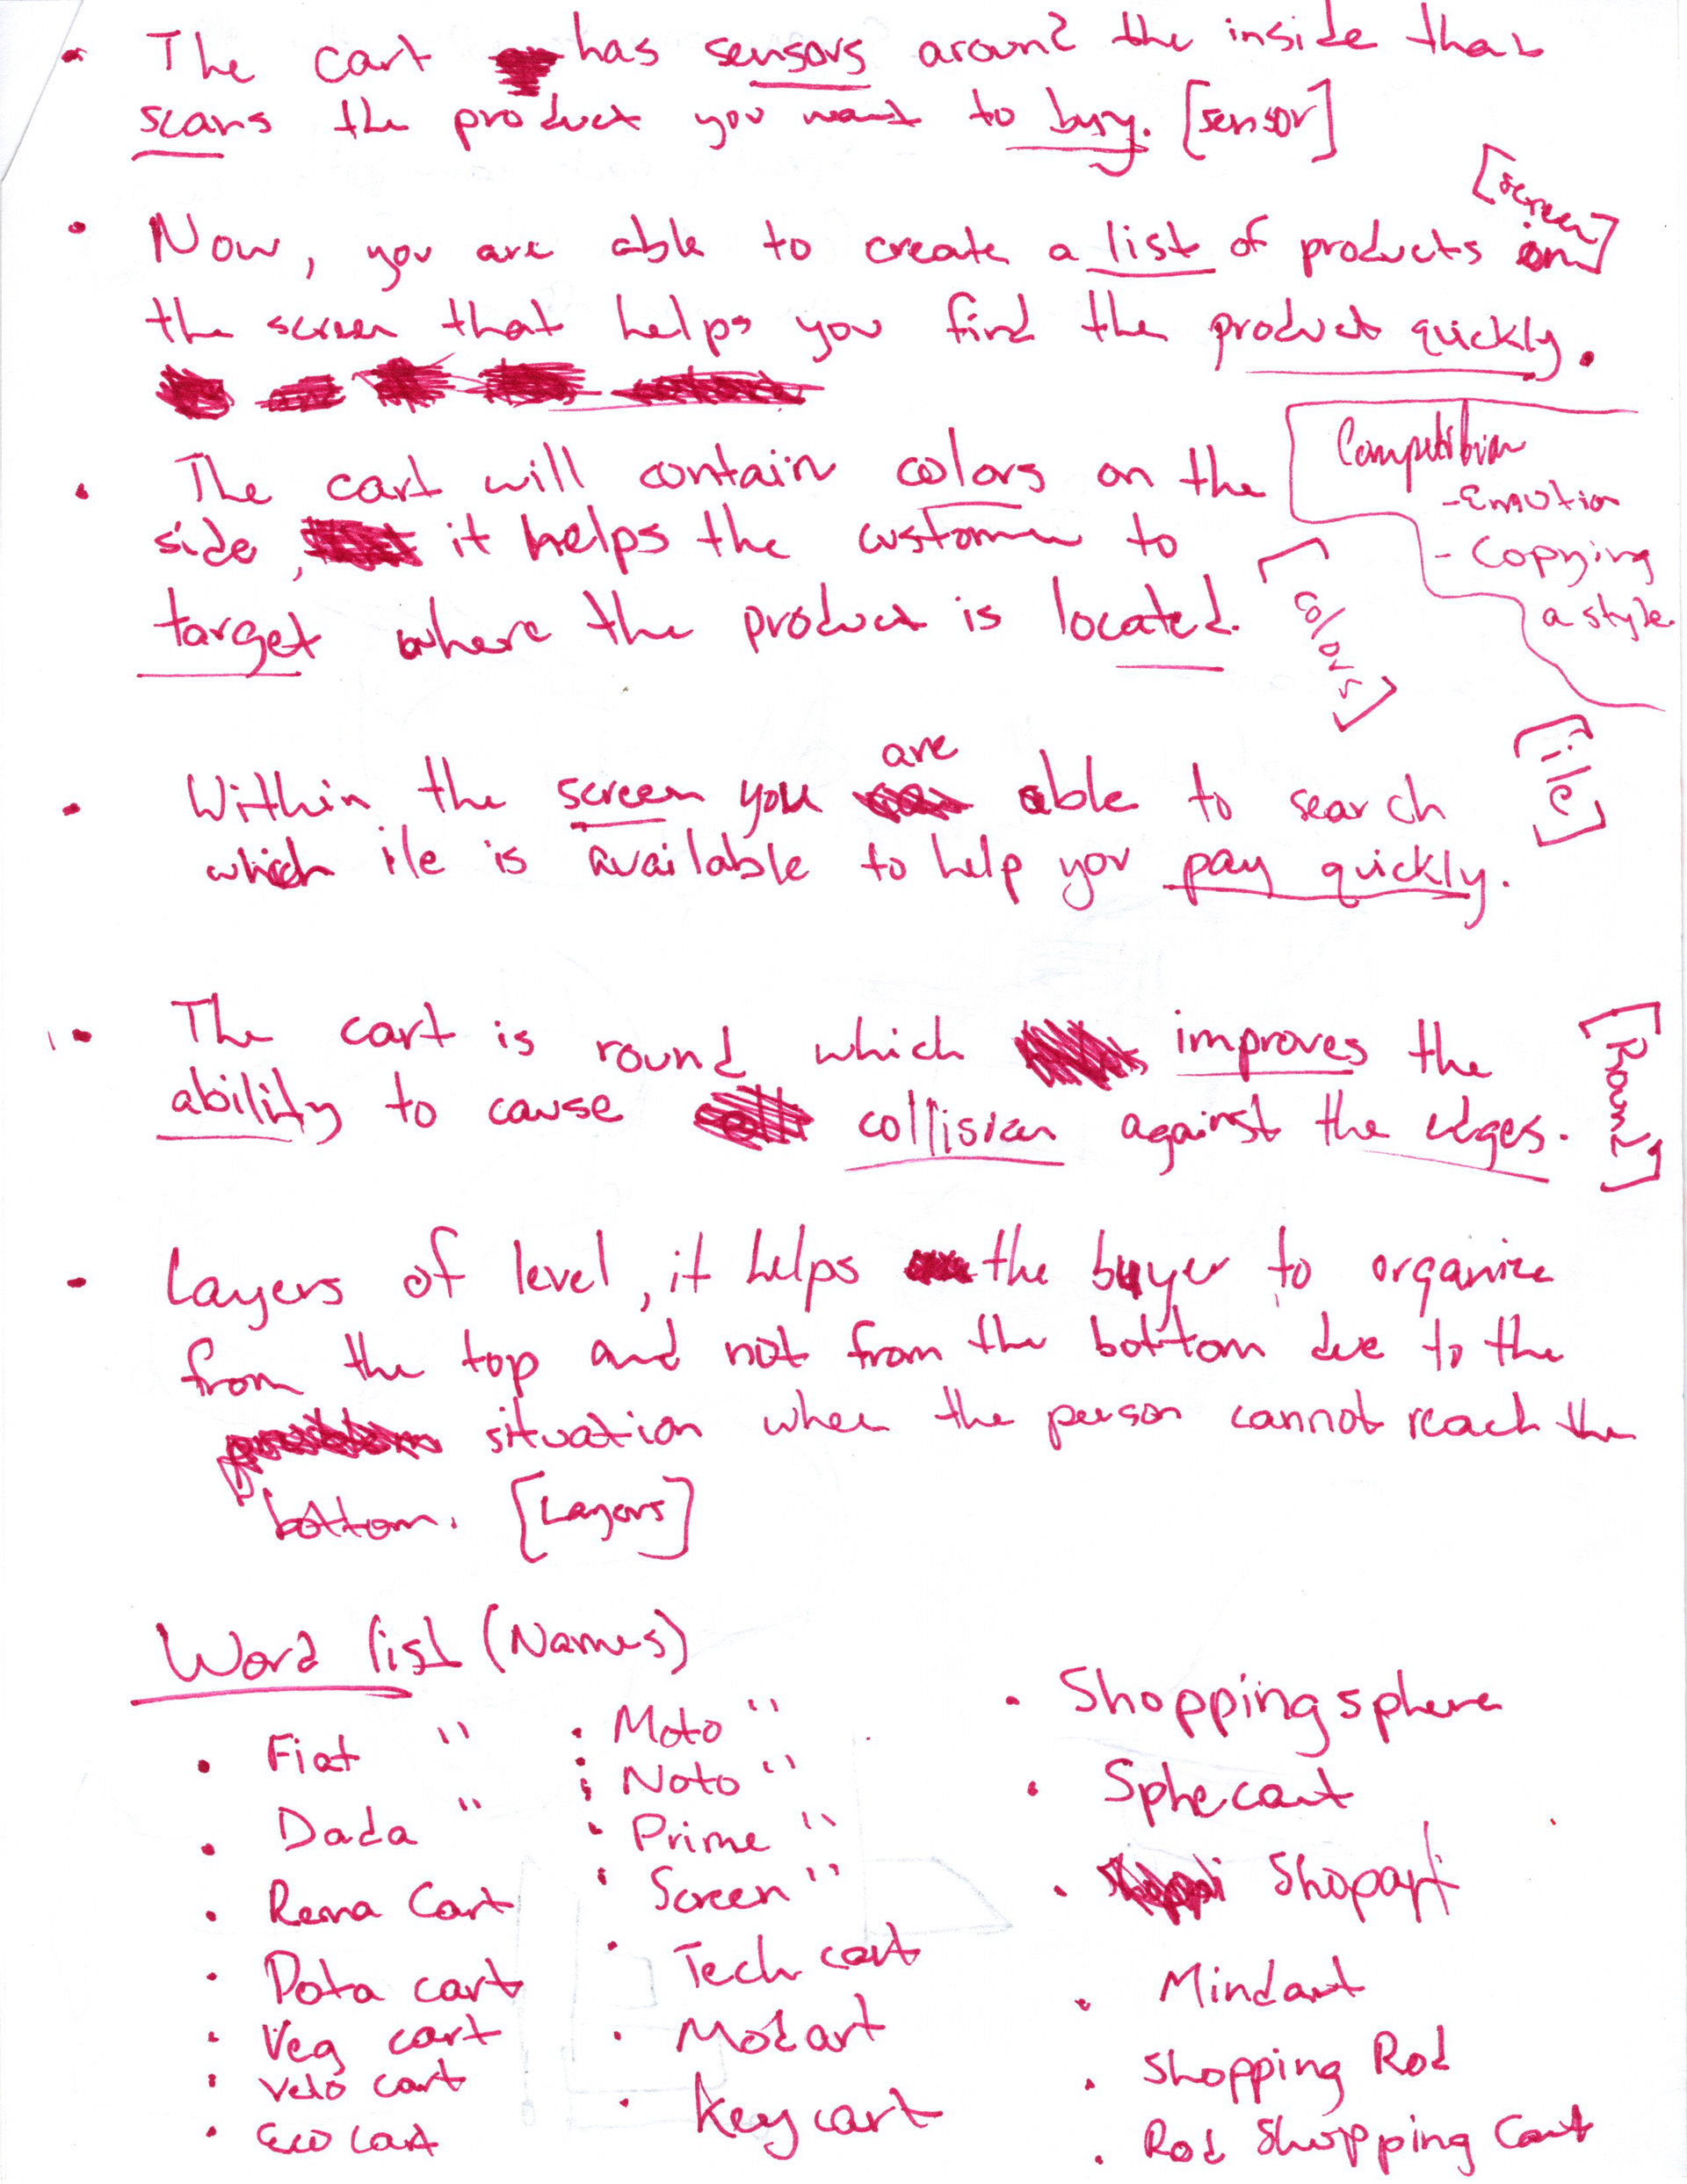 • The cart has sensors around the inside that
scans the product you want to buy. [sensor]
[screen]
• Now, you are able to create a list of products on
the screen that helps you find the product quickly.
• The cart will contain colors on the
side, it helps the customer to
target where the product is located.
[colors]
Competition
- Emotion
- Copying
a style
• Within the screen you are able to search
which ile is available to help you pay quickly.
[ile]
• The cart is round which improves the
ability to cause collision against the edges.
[Round]
• Layers of level, it helps the buyer to organize
from the top and not from the bottom due to the
situation when the person cannot reach the
bottom. [Layers]
Word list (Names)
• Fiat "
• Dada "
• Rema Cart
• Data cart
• Veg cart
• Velo cart
• Eco Cart
• Moto "
• Noto "
• Prime "
• Screen "
• Tech cart
• Modart
• Key cart
• Shoppingsphere
• Sphecart
• Shopart
• Mindart
• Shopping Rod
• Rod Shopping Cart